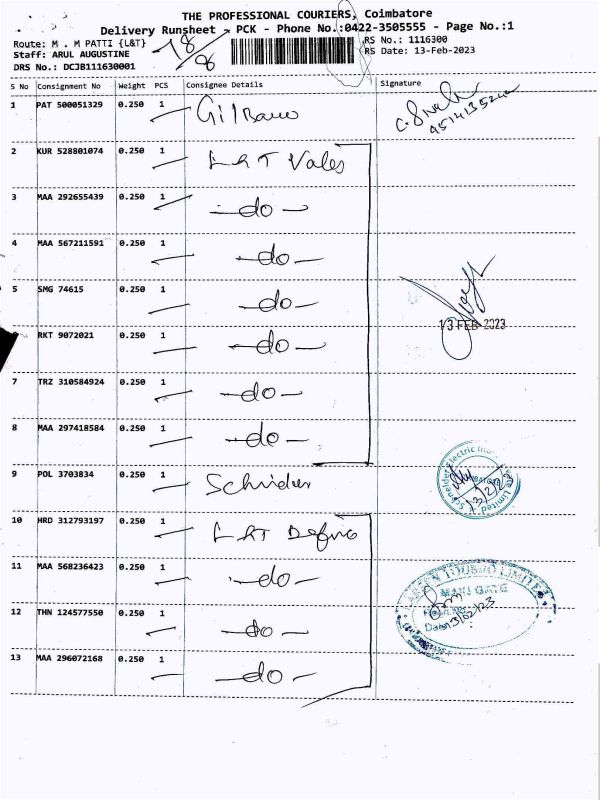 THE PROFESSIONAL COURIERS, Coimbatore
Delivery Runsheet - PCK - Phone No.:0422-3505555 - Page No.:1
Route: M . M PATTI {L&T}
18/8
RS No.: 1116300
Staff: ARUL AUGUSTINE
RS Date: 13-Feb-2023
DRS No.: DCJB111630001
S No Consignment No Weight PCS Consignee Details Signature
1 PAT 500051329 0.250 1
2 KUR 528801074 0.250 1 L & T Vales
3 MAA 292655439 0.250 1 -do-
4 MAA 567211591 0.250 1 -do-
5 SMG 74615 0.250 1 -do-
13 FEB 2023
RKT 9072021 0.250 1 -do-
7 TRZ 310584924 0.250 1 -do-
8 MAA 297418584 0.250 1 -do-
9 POL 3703834 0.250 1 Schnider
Schneider Electric Limited
13/2/23
10 HRD 312793197 0.250 1 L & T
11 MAA 568236423 0.250 1 -do-
TOUBRO LIMITED
MAIN GATE
Date 13/02/23
12 THN 124577550 0.250 1 -do-
13 MAA 296072168 0.250 1 -do-